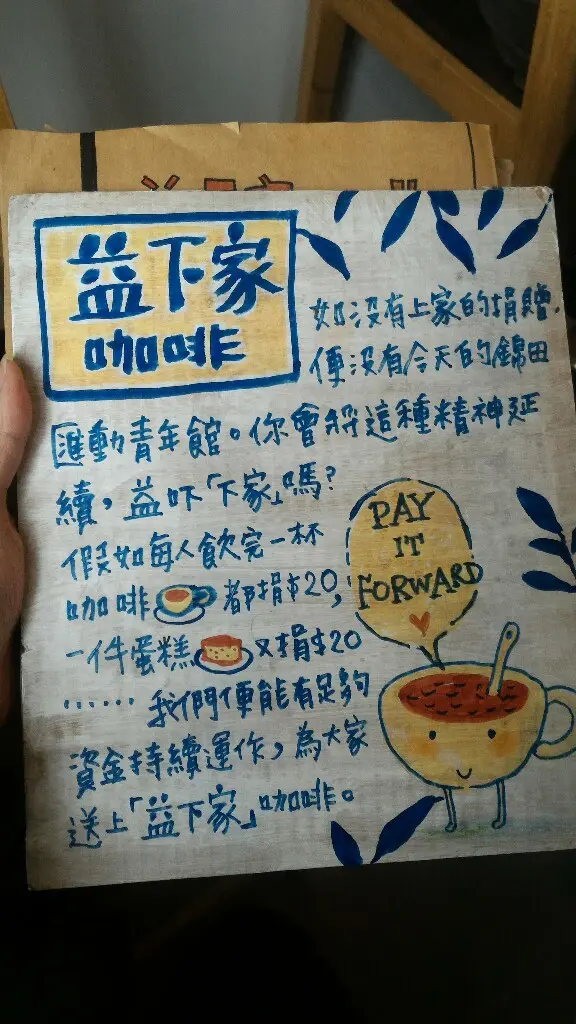 益下家
咖啡
如沒有上家的捐贈，
便沒有今天的錦田
匯動青年館。你會將這種精神延
續，益吓「下家」嗎？
假如每人飲完一杯
咖啡都捐$20，
一件蛋糕又捐$20
……我們便能有足夠
資金持續運作，為大家
送上「益下家」咖啡。
PAY
IT
FORWARD